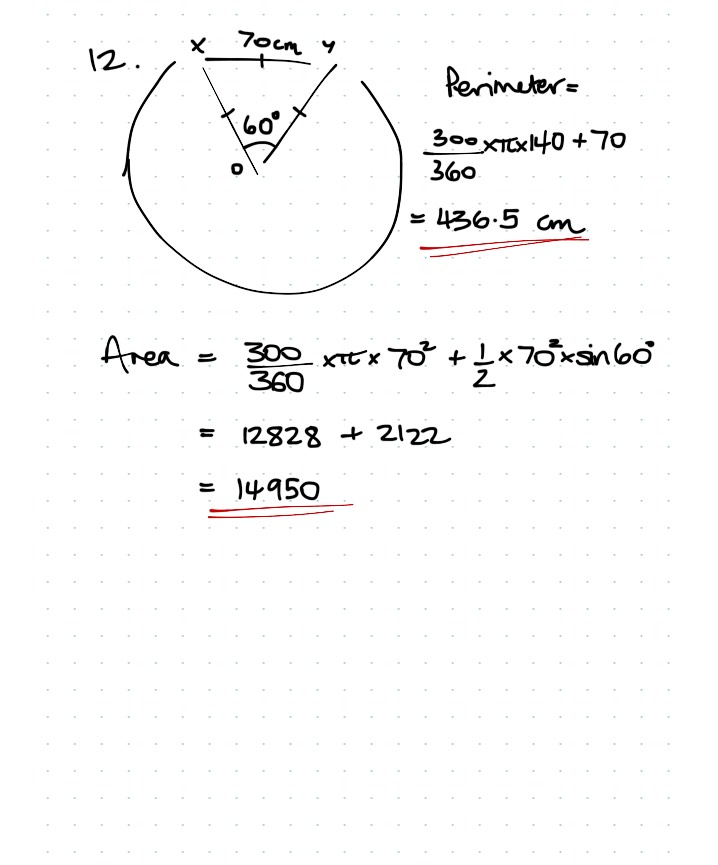 12.
x 70cm y
60°
o
Perimeter =
300/360 × π × 140 + 70
= 436.5 cm
Area = 300/360 × π × 70² + 1/2 × 70² × sin 60°
= 12828 + 2122
= 14950